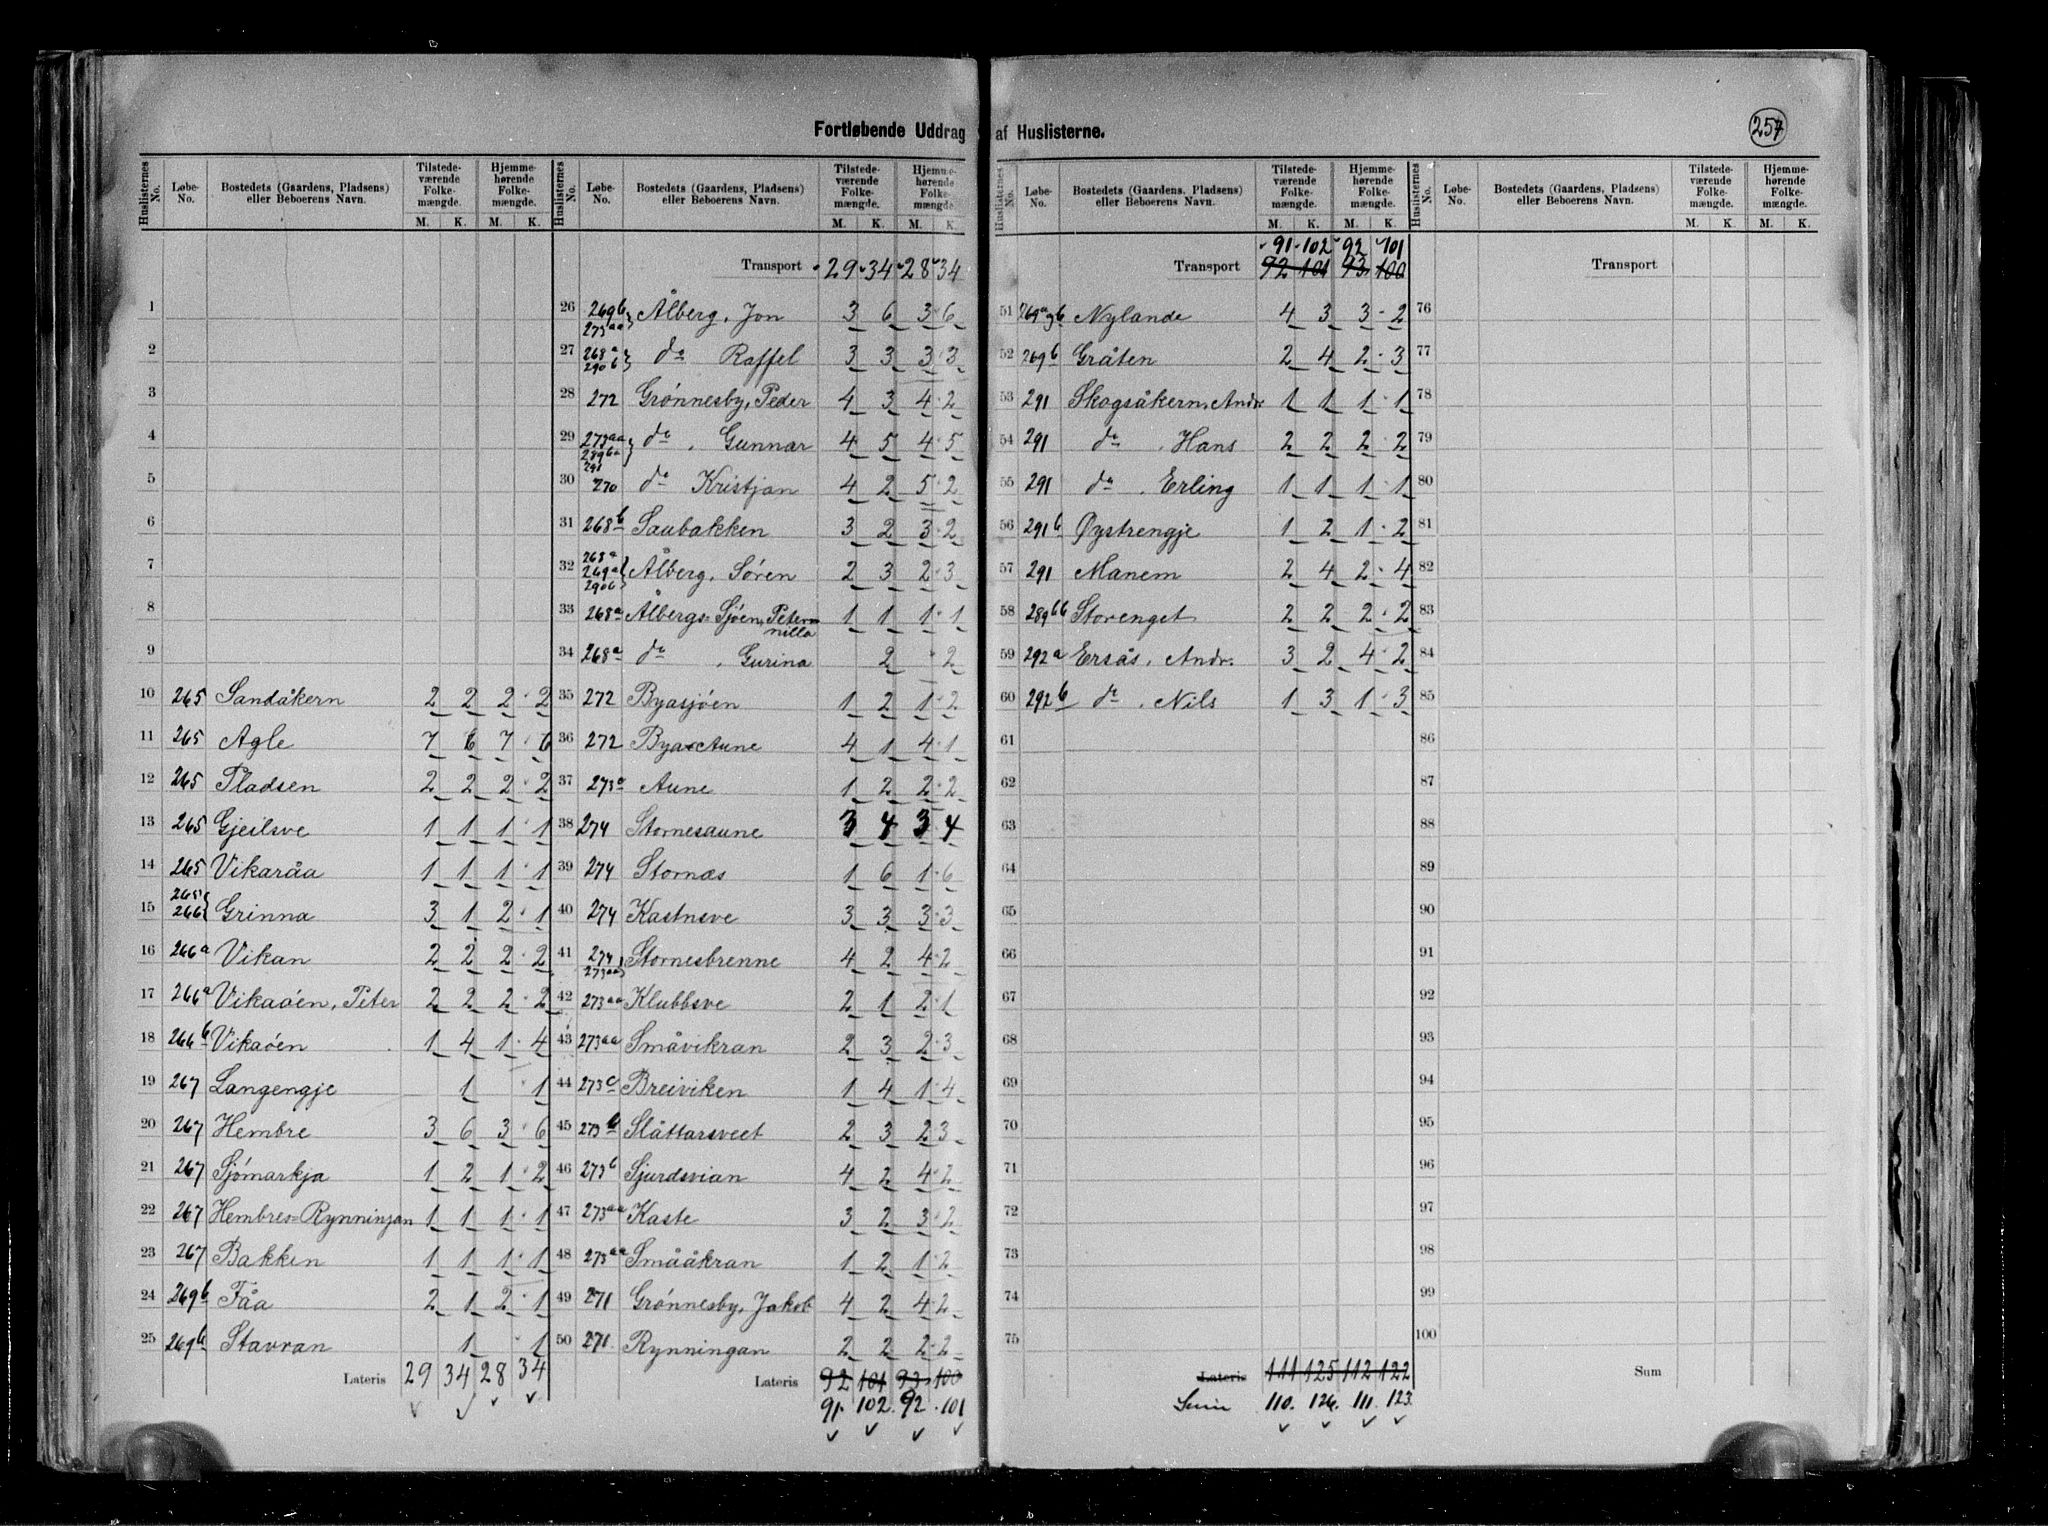 Fortløbende Uddrag af Huslisterne.
257
Huslisternes No. Løbe-No. Bostedets (Gaardens, Pladsens) eller Beboerens Navn. Tilstedeværende Folkemængde. M. K. Hjemmehørende Folkemængde. M. K.
1
2
3
4
5
6
7
8
9
10 265 Sandåkern 2 2 2 2
11 265 Agle 7 6 7 6
12 265 Pladsen 2 2 2 2
13 265 Gjeilsve 1 1 1 1
14 265 Vikaråa 1 1 1 1
15 265 266 Grinna 3 1 2 1
16 266a Vikan 2 2 2 2
17 266a Vikaøen, Peter 2 2 2 2
18 266b Vikaøen 1 4 1 4
19 267 Langengje 1 1
20 267 Hembre 3 6 3 6
21 267 Sjömarkja 1 2 1 2
22 267 Hembres-Rynninjan 1 1 1 1
23 267 Bakken 1 1 1 1
24 269b Fåa 2 1 2 1
25 269b Stavran 1 1
Lateris 29 34 28 34
Huslisternes No. Løbe-No. Bostedets (Gaardens, Pladsens) eller Beboerens Navn. Tilstedeværende Folkemængde. M. K. Hjemmehørende Folkemængde. M. K.
Transport 29 34 28 34
26 269b 273aa Ålberg, Jon 3 6 3 6
27 268a 290b da Raffel 3 3 3 3
28 272 Grønnesby, Peder 4 3 4 2
29 273aa 289ba da, Gunnar 4 5 4 5
30 291 270 da Kristjan 4 2 5 2
31 268b Saubakken 3 2 3 2
32 268a 269a 290b Ålberg, Søren 2 3 2 3
33 268a Ålbergs-Sjøen, Peternilla 1 1 1 1
34 268a da, Gurina 2 2
35 272 Byasjøen 1 2 1 2
36 272 Byas-Aune 4 1 4 1
37 273a Aune 1 2 2 2
38 274 Stornesaune 3 4 3 4
39 274 Stornæs 1 6 1 6
40 274 Kastnsve 3 3 3 3
41 274 273aa Stornesbrenne 4 2 4 2
42 273aa Klubbsve 2 1 2 1
43 273aa Småvikran 2 3 2 3
44 273c Breiviken 1 4 1 4
45 273b Slåttarsveet 2 3 2 3
46 273b Sjurdsvian 4 2 4 2
47 273aa Kaste 3 2 3 2
48 273aa Smååkran 1 2 1 2
49 271 Grønnesby, Jakob 4 2 4 2
50 271 Rynningan 2 2 2 2
Lateris 92 101 93 100
91 102 92 101
Huslisternes No. Løbe-No. Bostedets (Gaardens, Pladsens) eller Beboerens Navn. Tilstedeværende Folkemængde. M. K. Hjemmehørende Folkemængde. M. K.
91 102 92 101
Transport 92 101 93 100
51 269a og b Nylande 4 3 3 2
52 269b Gråten 2 4 2 3
53 291 Skogsåkern, Andr. 1 1 1 1
54 291 da, Hans 2 2 2 2
55 291 da, Erling 1 1 1 1
56 291b Øystrengje 1 2 1 2
57 291 Manem 2 4 2 4
58 289bb Storenget 2 2 2 2
59 292a Ersås, Andr. 3 2 4 2
60 292b da, Nils 1 3 1 3
61
62
63
64
65
66
67
68
69
70
71
72
73
74
75
Lateris 111 125 112 122
Sum 110. 126. 111. 123.
Huslisternes No. Løbe-No. Bostedets (Gaardens, Pladsens) eller Beboerens Navn. Tilstedeværende Folkemængde. M. K. Hjemmehørende Folkemængde. M. K.
Transport
76
77
78
79
80
81
82
83
84
85
86
87
88
89
90
91
92
93
94
95
96
97
98
99
100
Sum